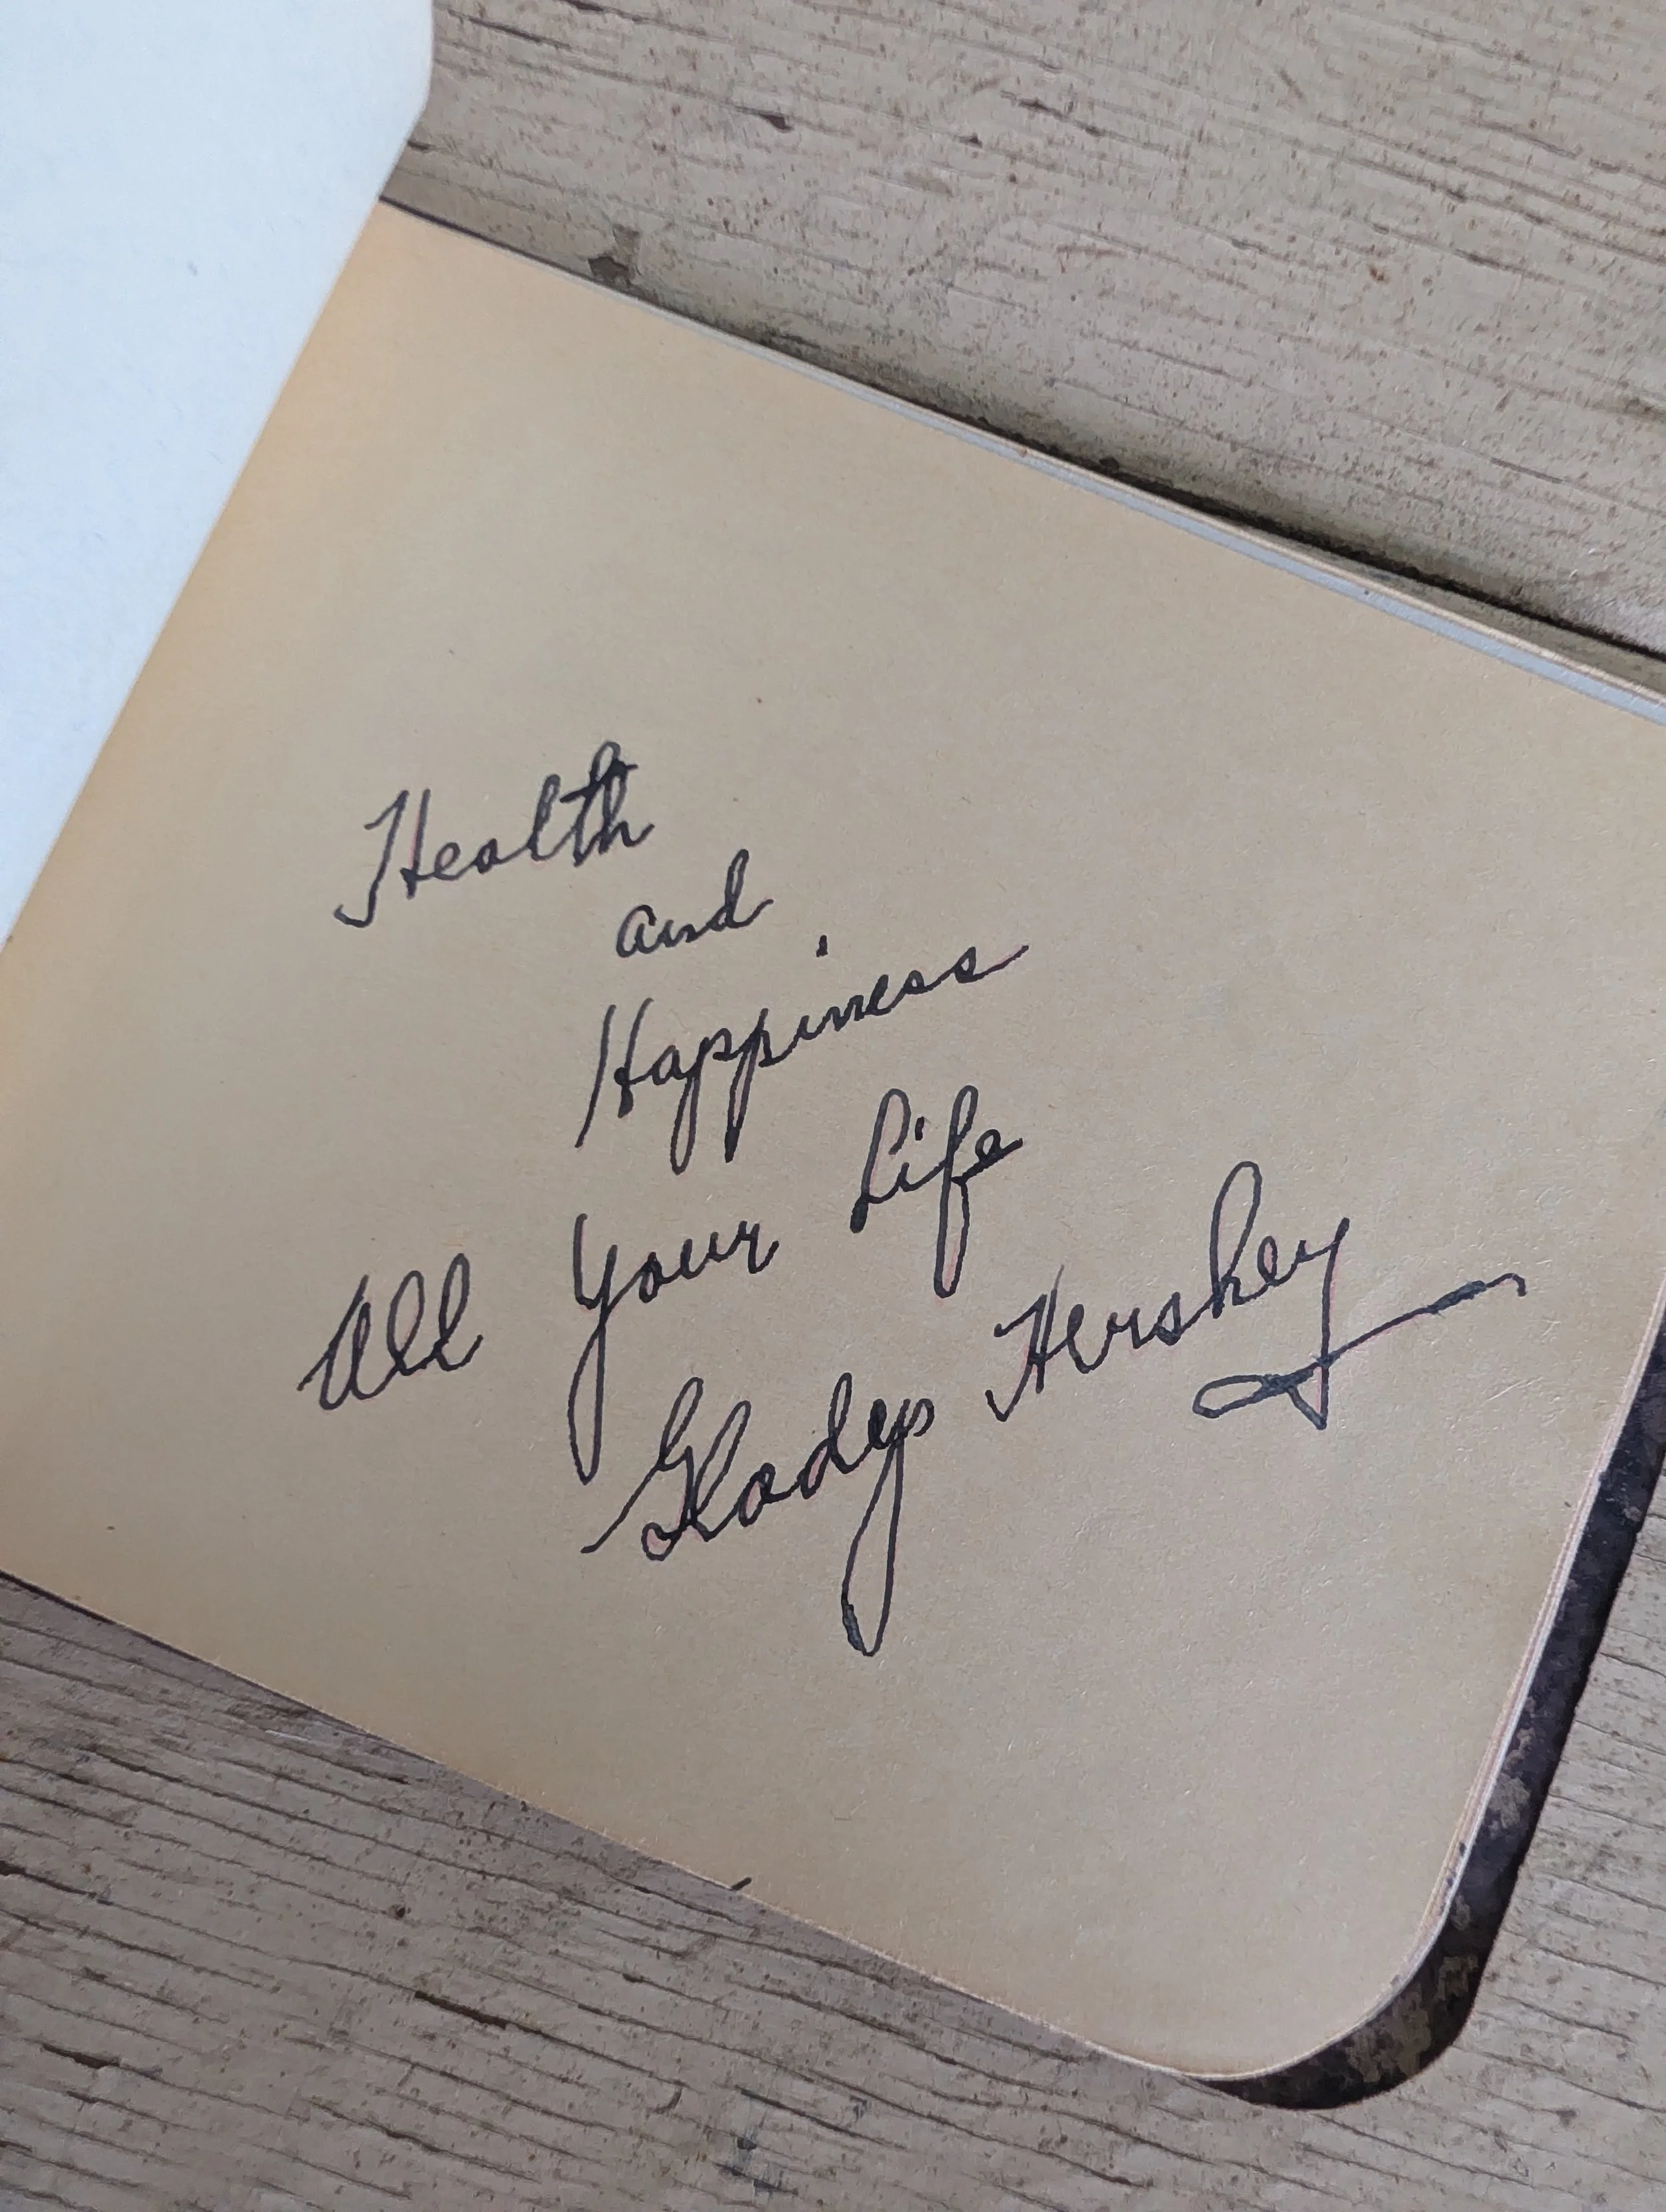 Health
and
Happiness
All Your Life
Gladys Hershey